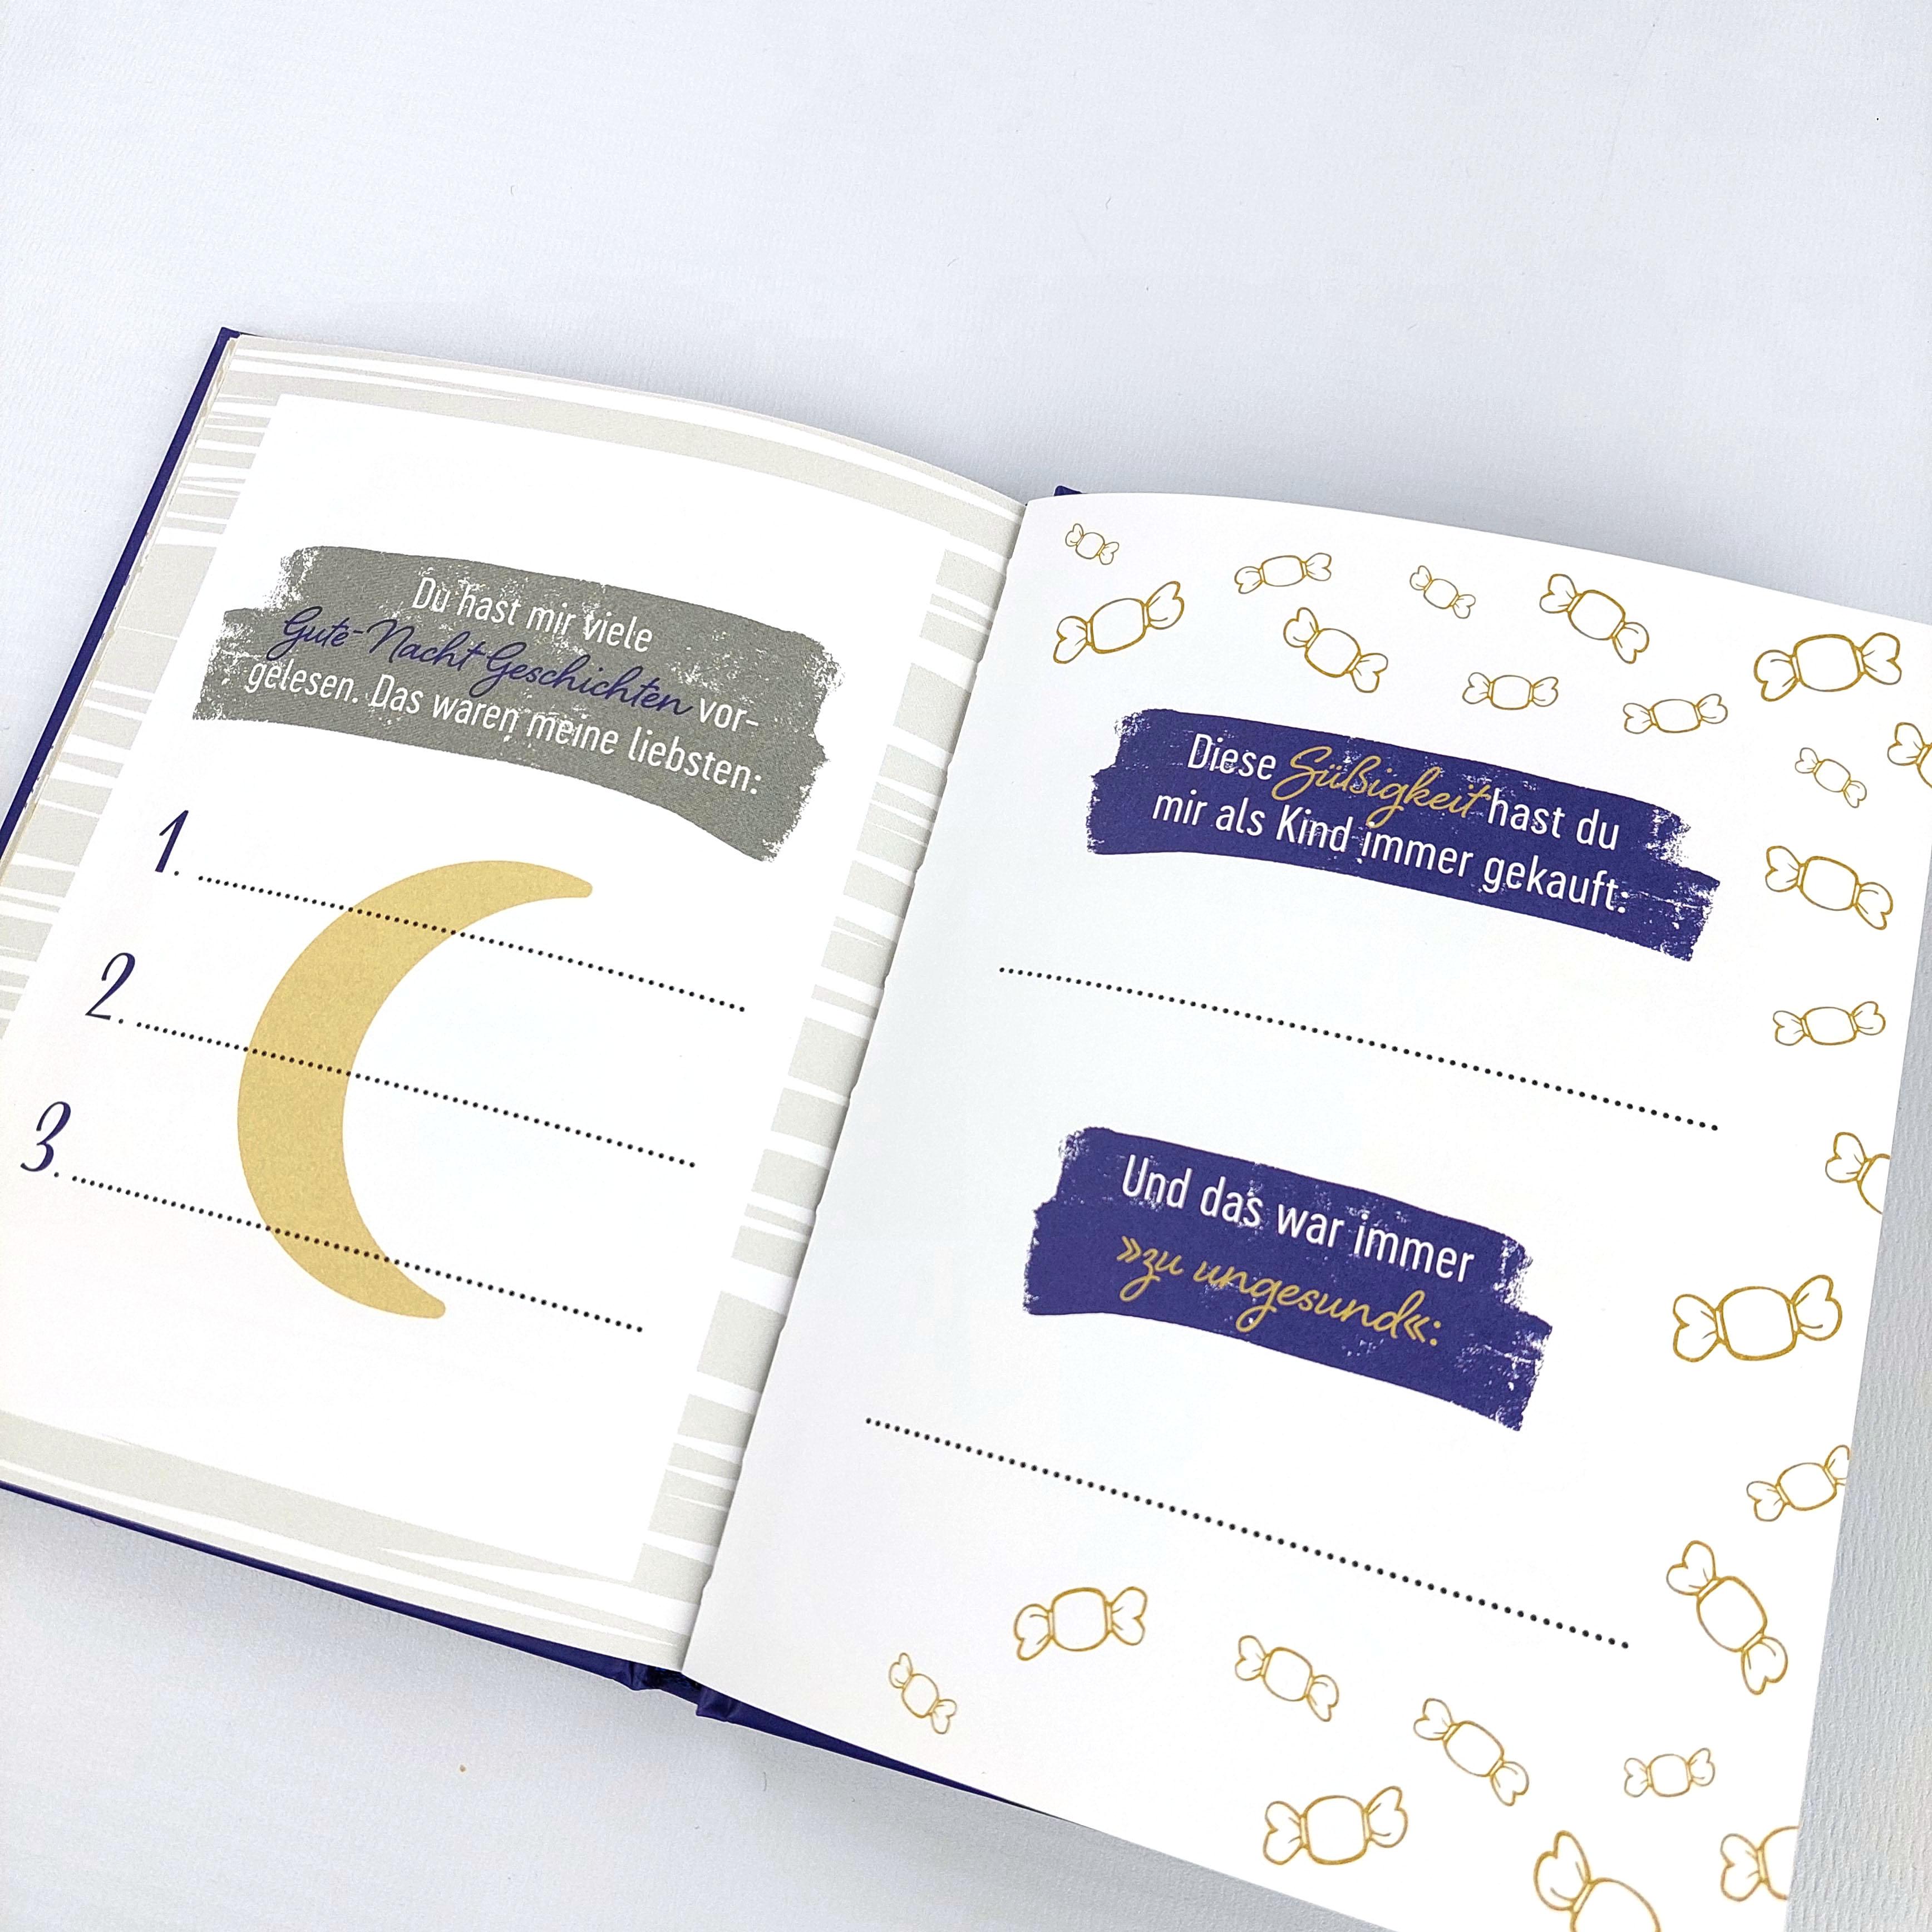 Du hast mir viele
Gute-Nacht-Geschichten vor-
gelesen. Das waren meine liebsten:
1.
2.
3.
Diese Süßigkeit hast du
mir als Kind immer gekauft:
Und das war immer
»zu ungesund«: